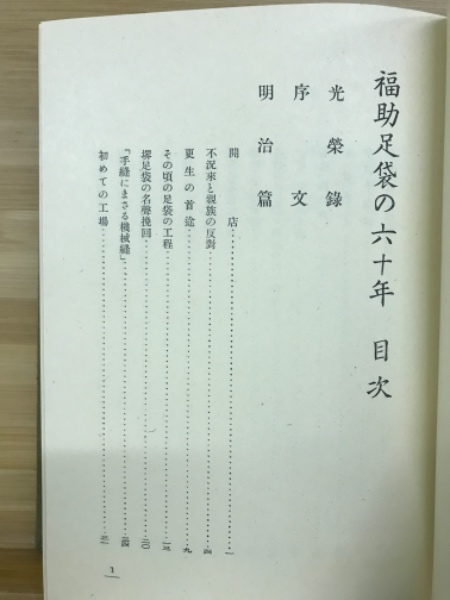 福助足袋の六十年 目次
光榮錄
序文
明治篇
開店……一
不況來と親族の反對……四
更生の首途……九
その頃の足袋の工程……一三
堺足袋の名聲挽回……二〇
「手縫にまさる機械縫」……二四
初めての工場……三一
1